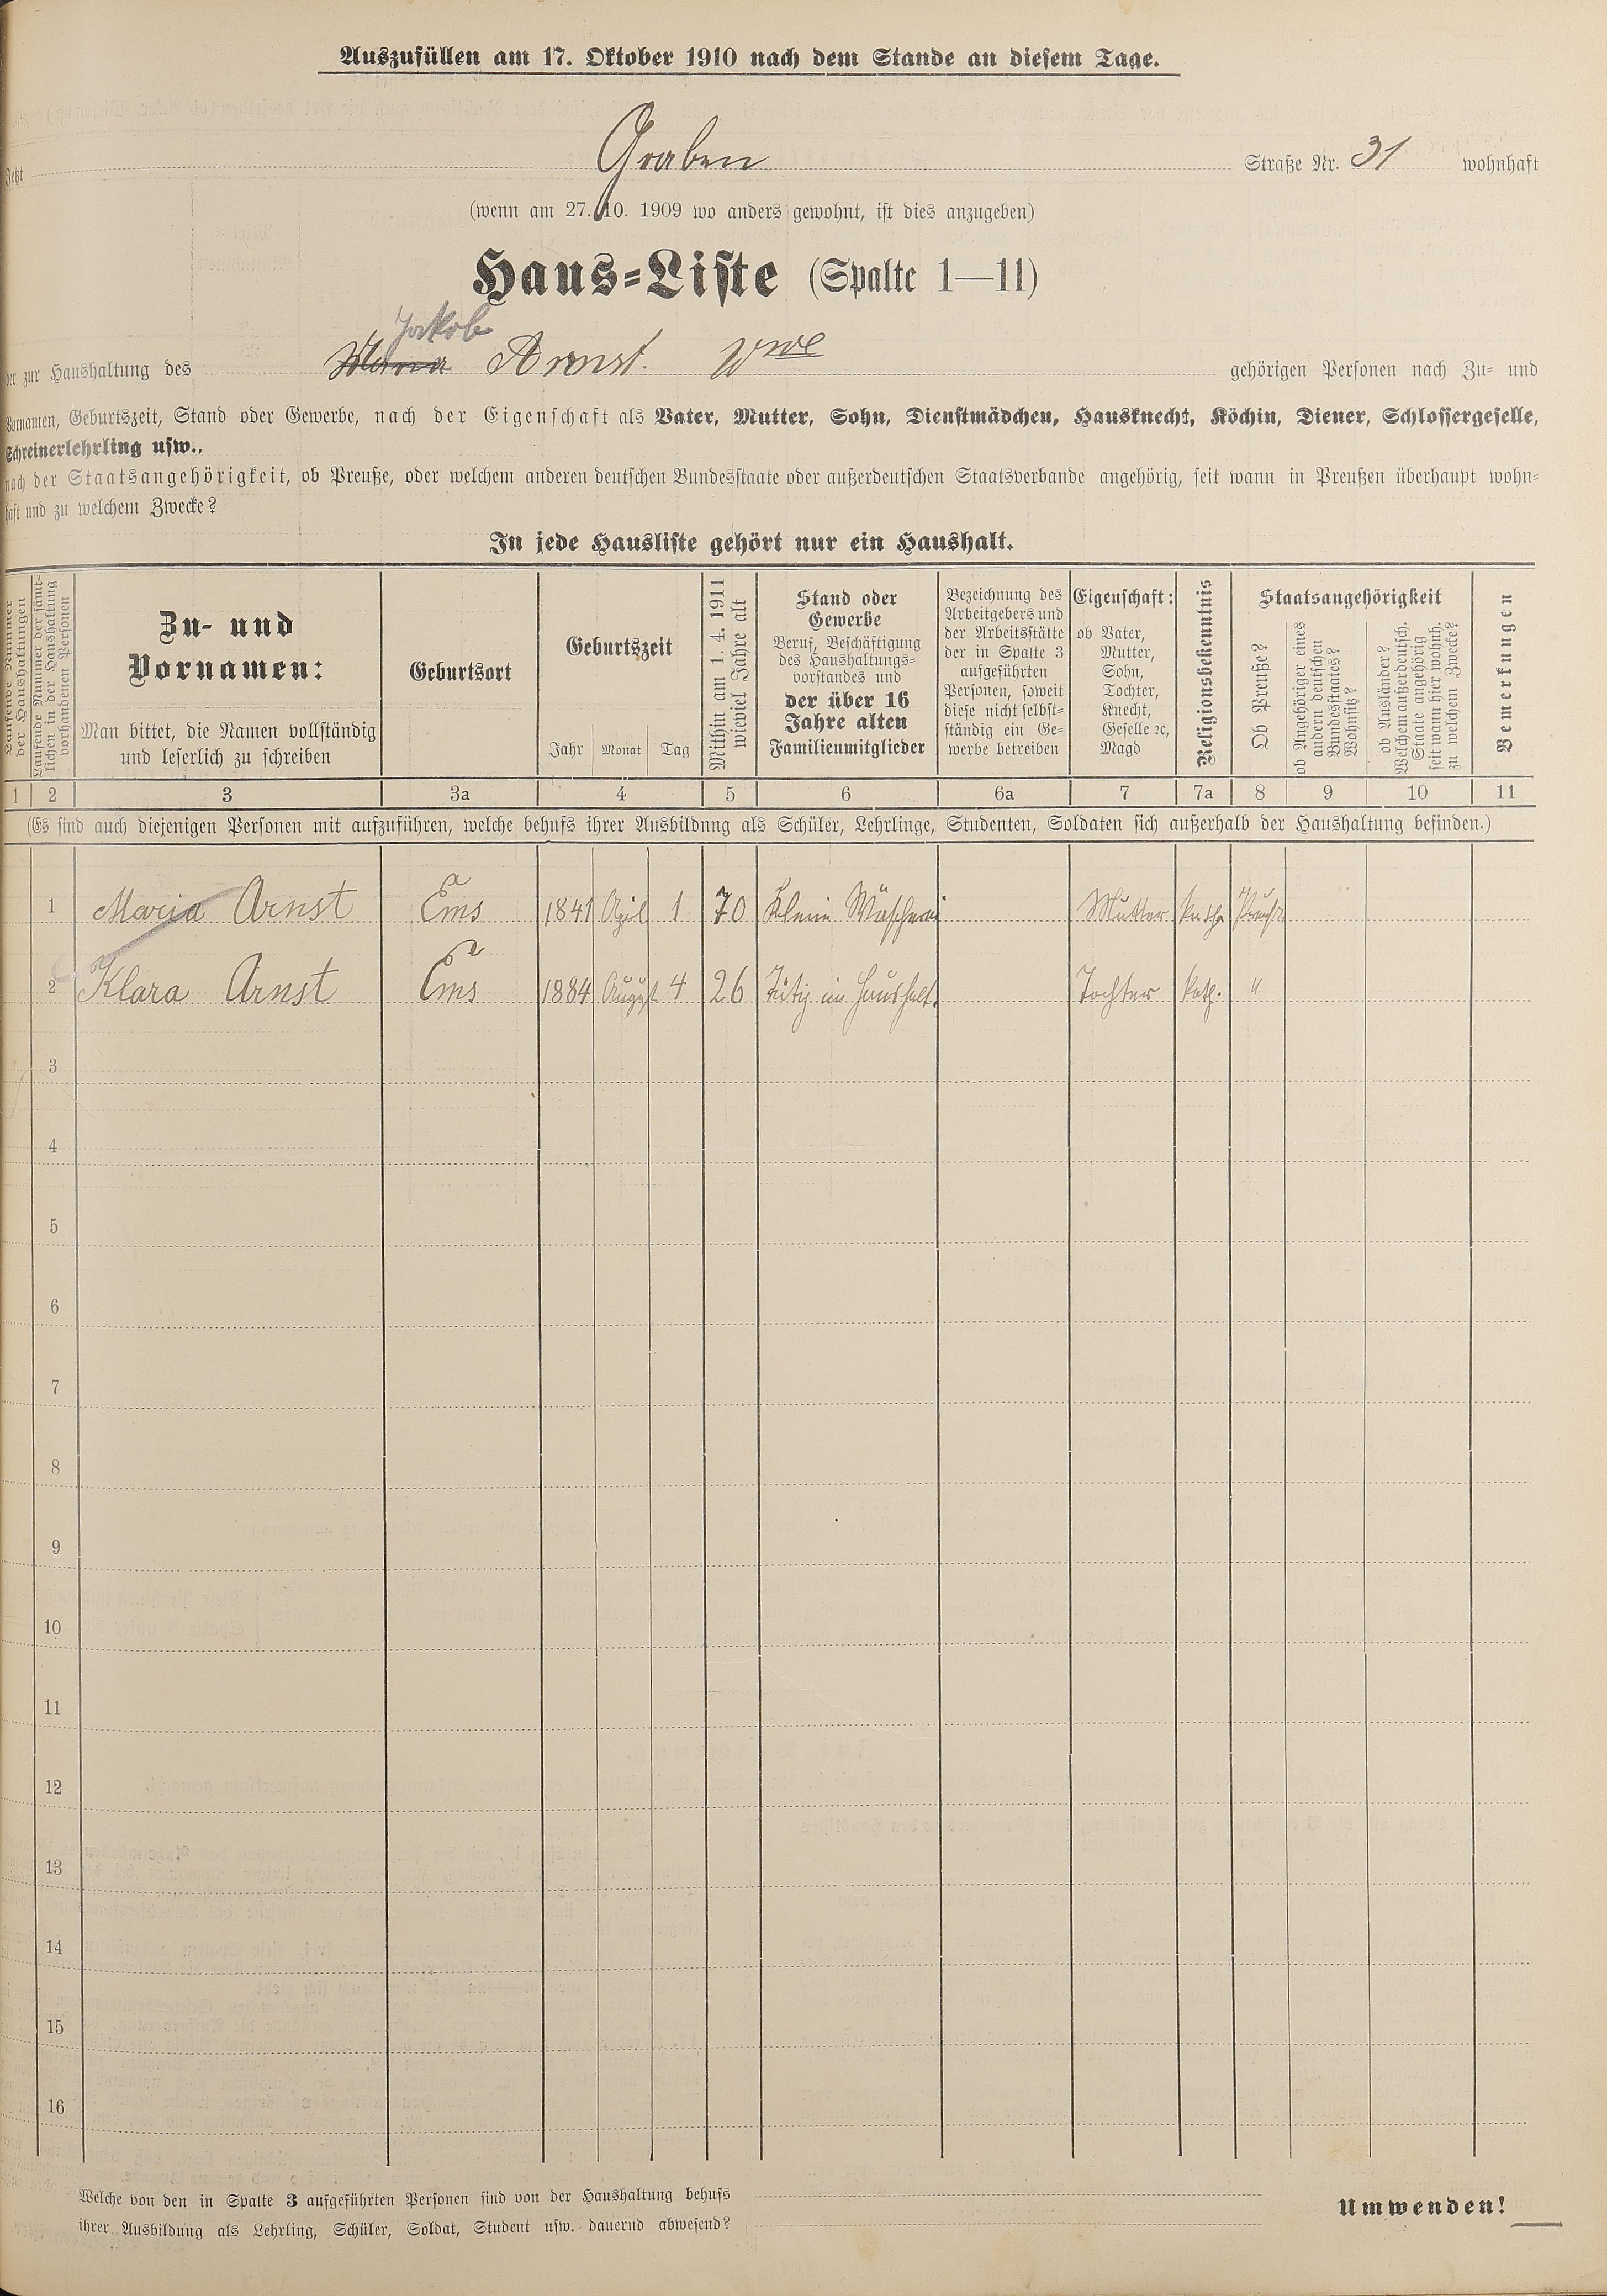 Auszufüllen am 17. Oktober 1910 nach dem Stande an diesem Tage.
Jetzt Graben Straße Nr. 31 wohnhaft
(wenn am 27. 10. 1909 wo anders gewohnt, ist dies anzugeben)
Haus-Liste (Spalte 1—11)
Jakob
der zur Haushaltung des Maria Arnst. Wwe gehörigen Personen nach Zu- und
Vornamen, Geburtszeit, Stand oder Gewerbe, nach der Eigenschaft als Vater, Mutter, Sohn, Dienstmädchen, Hausknecht, Köchin, Diener, Schlossergeselle,
Schreinerlehrling usw.,
nach der Staatsangehörigkeit, ob Preuße, oder welchem anderen deutschen Bundesstaate oder außerdeutschen Staatsverbande angehörig, seit wann in Preußen überhaupt wohn-
haft und zu welchem Zwecke?
In jede Hausliste gehört nur ein Haushalt.
Laufende Nummer
der Haushaltungen
Laufende Nummer der sämt-
lichen in der Haushaltung
vorhandenen Personen
Zu- und
Vornamen:
Man bittet, die Namen vollständig
und leserlich zu schreiben
Geburtsort
Geburtszeit
Jahr Monat Tag
Mithin am 1. 4. 1911
wieviel Jahre alt
Stand oder
Gewerbe
Beruf, Beschäftigung
des Haushaltungs-
vorstandes und
der über 16
Jahre alten
Familienmitglieder
Bezeichnung des
Arbeitgebers und
der Arbeitsstätte
der in Spalte 3
aufgeführten
Personen, soweit
diese nicht selbst-
ständig ein Ge-
werbe betreiben
Eigenschaft:
ob Vater,
Mutter,
Sohn,
Tochter,
Knecht,
Geselle ꝛc,
Magd
Religionsbekenntnis
Staatsangehörigkeit
Ob Preuße?
ob Angehöriger eines
andern deutschen
Bundesstaates?
Wohnsitz?
ob Ausländer?
Welchem außerdeutsch.
Staate angehörig
seit wann hier wohnh.
zu welchem Zwecke?
Bemerkungen
1 2 3 3a 4 5 6 6a 7 7a 8 9 10 11
(Es sind auch diejenigen Personen mit aufzuführen, welche behufs ihrer Ausbildung als Schüler, Lehrlinge, Studenten, Soldaten sich außerhalb der Haushaltung befinden.)
1 Maria Arnst Ems 1841 April 1 70 Kleine Wäscherei Mutter kath Preuß.
2 Klara Arnst Ems 1884 August 4 26 Tätig im Haushalt. Tochter kath. "
3
4
5
6
7
8
9
10
11
12
13
14
15
16
Welche von den in Spalte 3 aufgeführten Personen sind von der Haushaltung behufs
ihrer Ausbildung als Lehrling, Schüler, Soldat, Student usw. dauernd abwesend?
Umwenden!